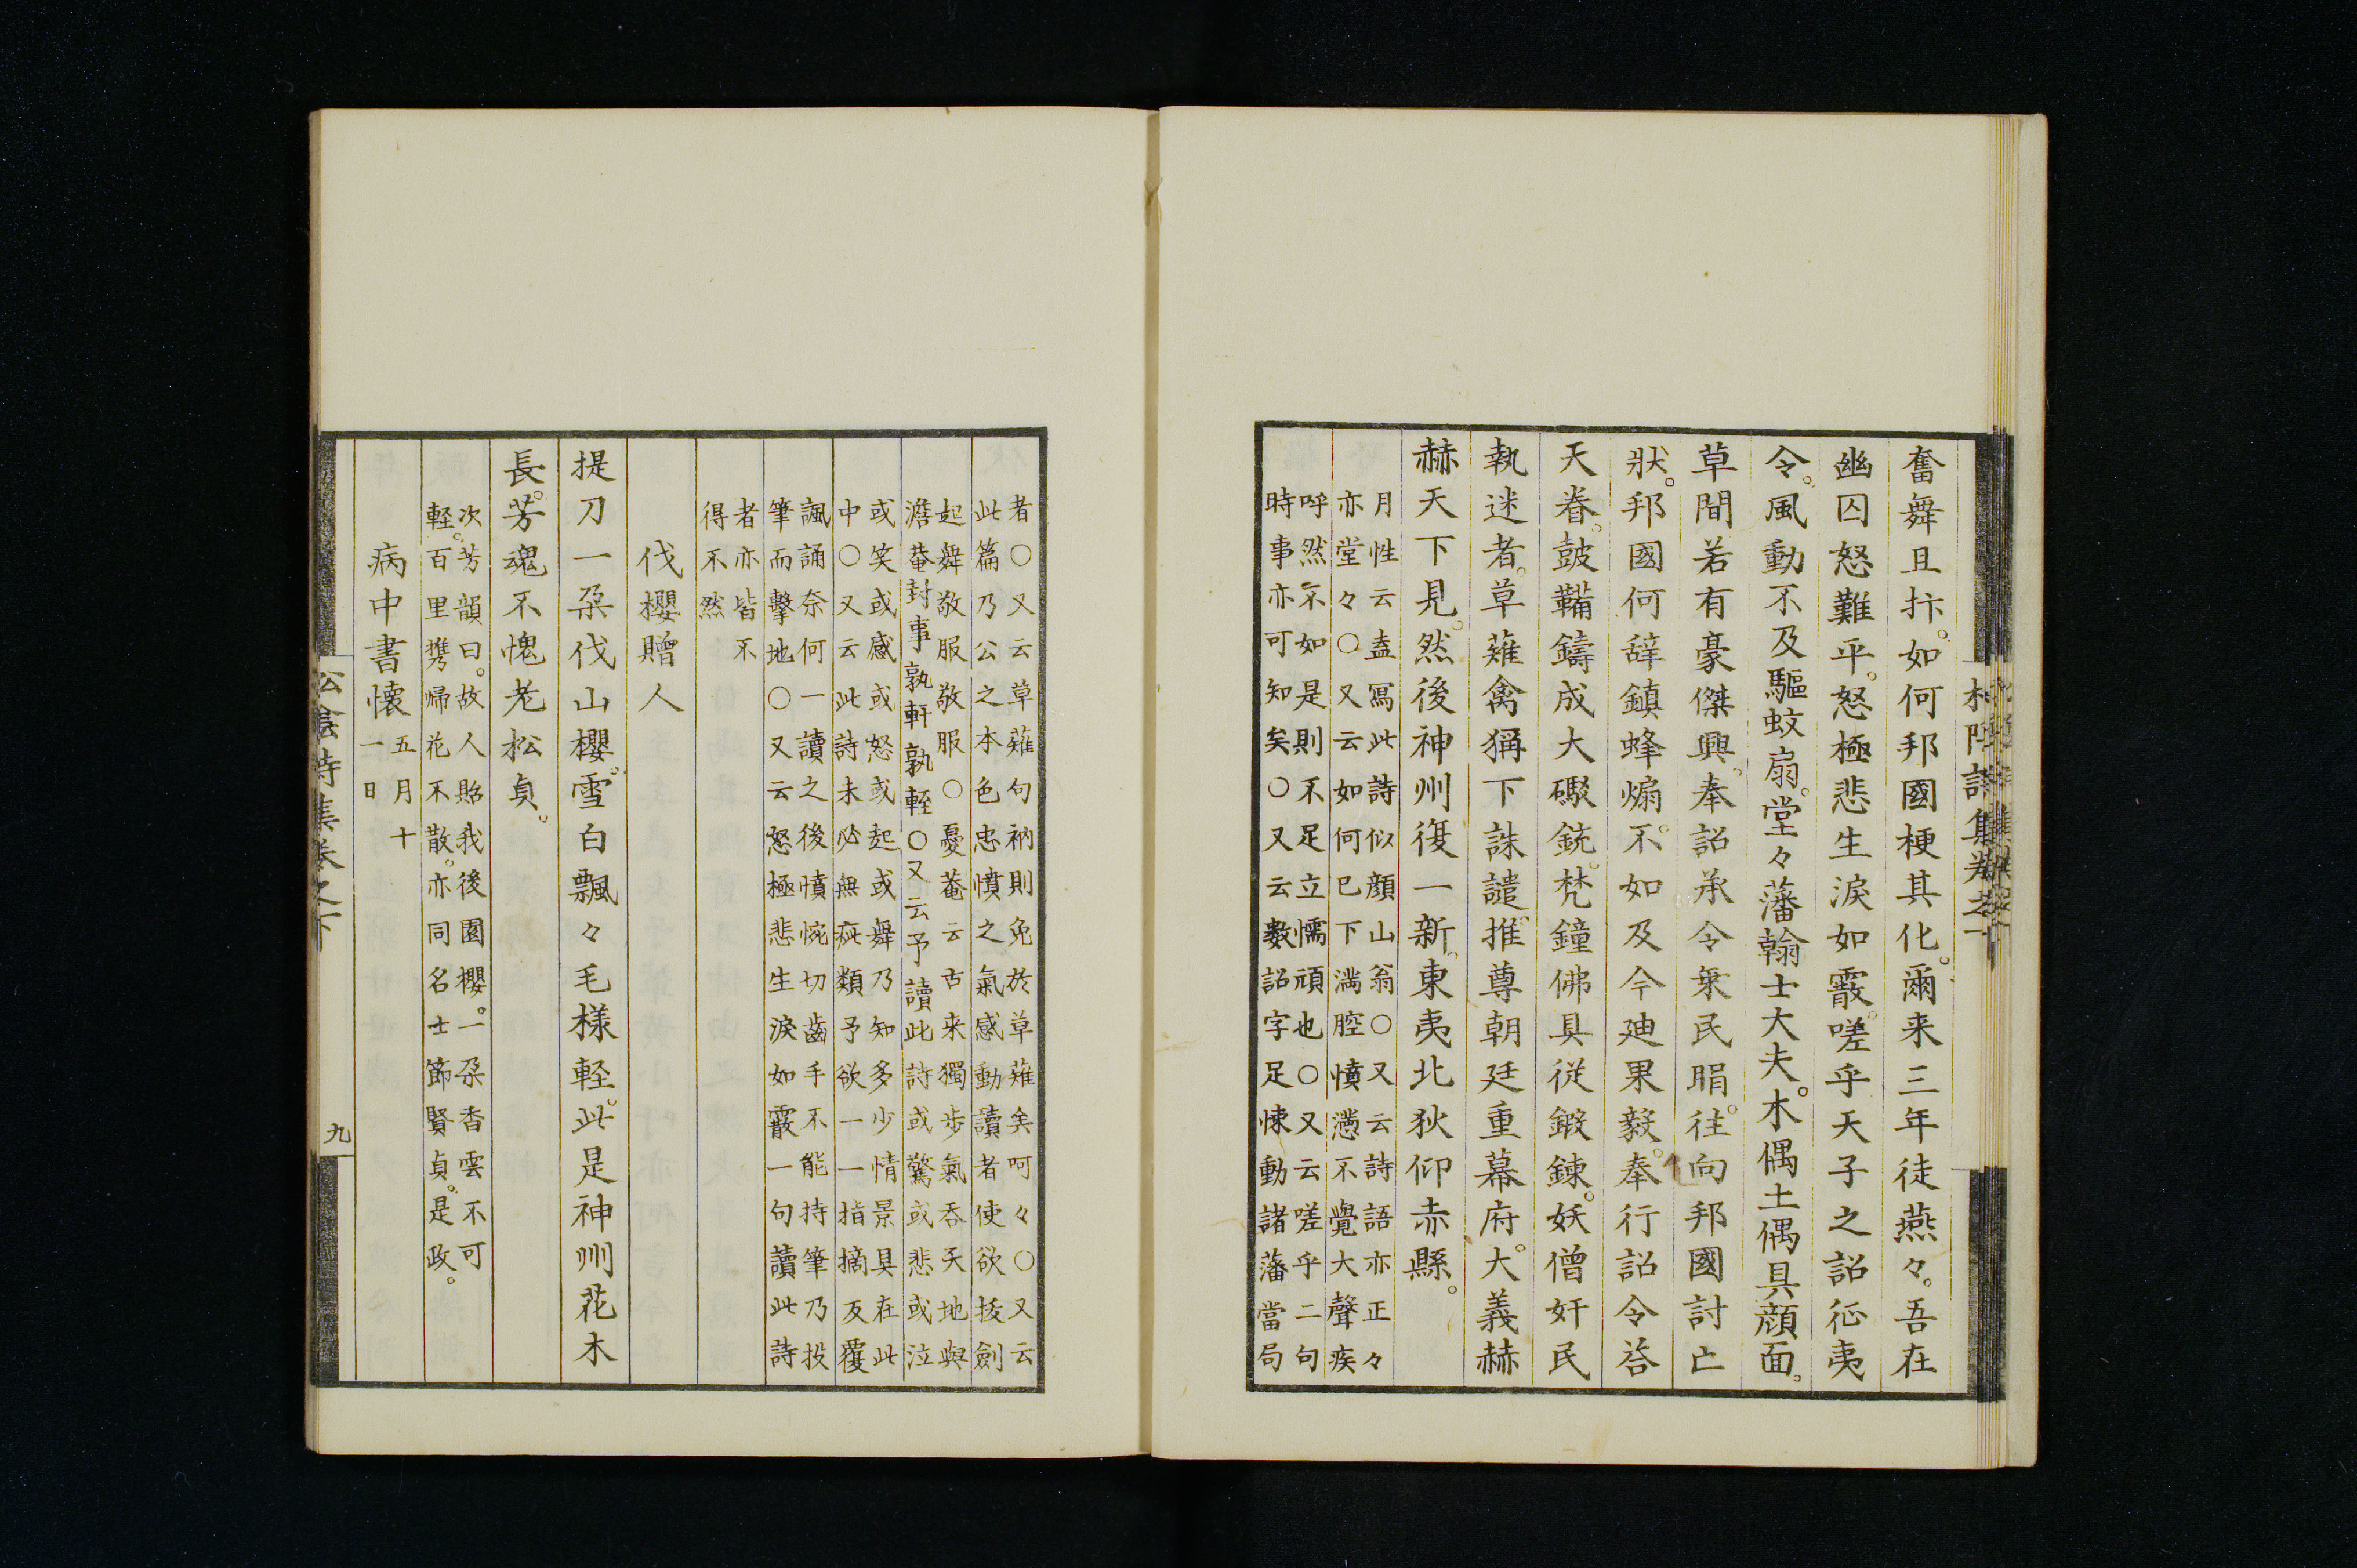 奮舞且抃。如何邦國梗其化。爾来三年徒燕々。吾在
幽囚怒難平。怒極悲生淚如霰。嗟乎天子之詔征夷
令。風動不及驅蚊扇。堂々藩翰士大夫。木偶土偶具顔面。
草間若有豪傑興。奉詔承令衆民䎽。往向邦國討亡
狀。邦國何辞鎮蜂煽。不如及今廸果毅。奉行詔令答
天眷。鼓鞴鑄成大礮銃。梵鐘佛具從鍛鍊。妖僧奸民
執迷者。草薙禽獮下誅譴。推尊朝廷重幕府。大義赫
赫天下見。然後神州復一新。東夷北狄仰赤縣。
月性云盍冩此詩似顔山翁〇又云詩語亦正々
亦堂々〇又云如何巳下満腔憤懣不覺大聲疾
呼然不如是則不足立懦頑也〇又云嗟乎二句
時事亦可知矣〇又云数詔字足悚動諸藩當局
者〇又云草薙句衲則免於草薙矣呵々〇又云
此篇乃公之本色忠憤之氣感動讀者使欲拔劍
起舞敬服敬服〇憂菴云古来獨歩氣吞天地與
澹菴封事孰軒孰輊〇又云予讀此詩或驚或悲或泣
或笑或感或怒或起或舞乃知多少情景具在此
中〇又云此詩未必無疵類予欲一一指摘反覆
諷誦奈何一讀之後憤惋切齒手不能持筆乃投
筆而擊地〇又云怒極悲生淚如霰一句讀此詩
者亦皆不
得不然
伐櫻贈人
提刀一朶伐山櫻。雪白飄々毛様輕。此是神州花木
長。芳魂不愧老松貞。
次芳韻曰。故人貽我後園櫻。一朶香雲不可
輕。百里攜帰花不散。亦同名士節賢貞。是政。
病中書懐 五月十
一日
松陰詩集卷之下
九